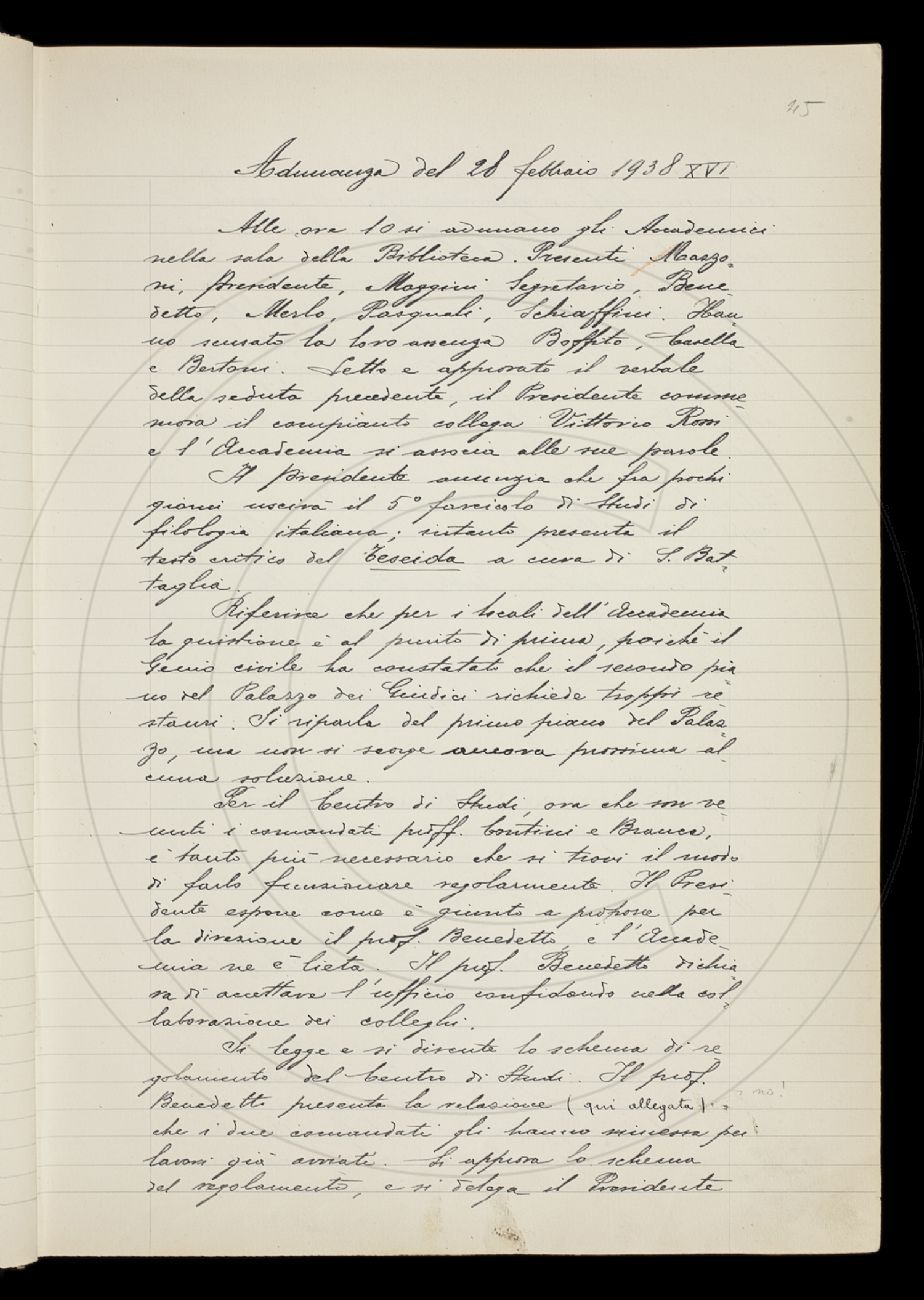 45
Adunanza del 28 febbraio 1938 XVI
Alle ore 10 si adunano gli Accademici
nella sala della Biblioteca. Presenti Mazzo-
ni, Presidente, Maggini Segretario, Bene-
detto, Merlo, Pasquali, Schiaffini. Han-
no scusato la loro assenza Boffito, Casella
e Bertoni. Letto e approvato il verbale
della seduta precedente, il Presidente comme-
mora il compianto collega Vittorio Rossi
e l'Accademia si associa alle sue parole.
Il Presidente annunzia che fra pochi
giorni uscirà il 5° fascicolo di Studi di
filologia italiana; intanto presenta il
testo critico del Teseida a cura di S. Bat-
taglia.
Riferisce che per i locali dell'Accademia
la quistione è al punto di prima, poichè il
Genio civile ha constatato che il secondo pia-
no del Palazzo dei Giudici richiede troppi re-
stauri. Si riparla del primo piano del Palaz-
zo, ma non si scorge ancora prossima al-
cuna soluzione.
Per il Centro di Studi, ora che son ve-
nuti i comandati proff. Contini e Branca,
è tanto più necessario che si trovi il modo
di farlo funzionare regolarmente. Il Presi-
dente espone come è giunto a proporre per
la direzione il prof. Benedetto, e l'Accade-
mia ne è lieta. Il prof. Benedetto dichia-
ra di accettare l'ufficio confidando nella col-
laborazione dei colleghi.
Si legge e si discute lo schema di re-
golamento del Centro di Studi. Il prof.
Benedetto presenta la relazione (qui allegata) no!
che i due comandati gli hanno rimessa pei
lavori già avviati. Si approva lo schema
del regolamento, e si delega il Presidente